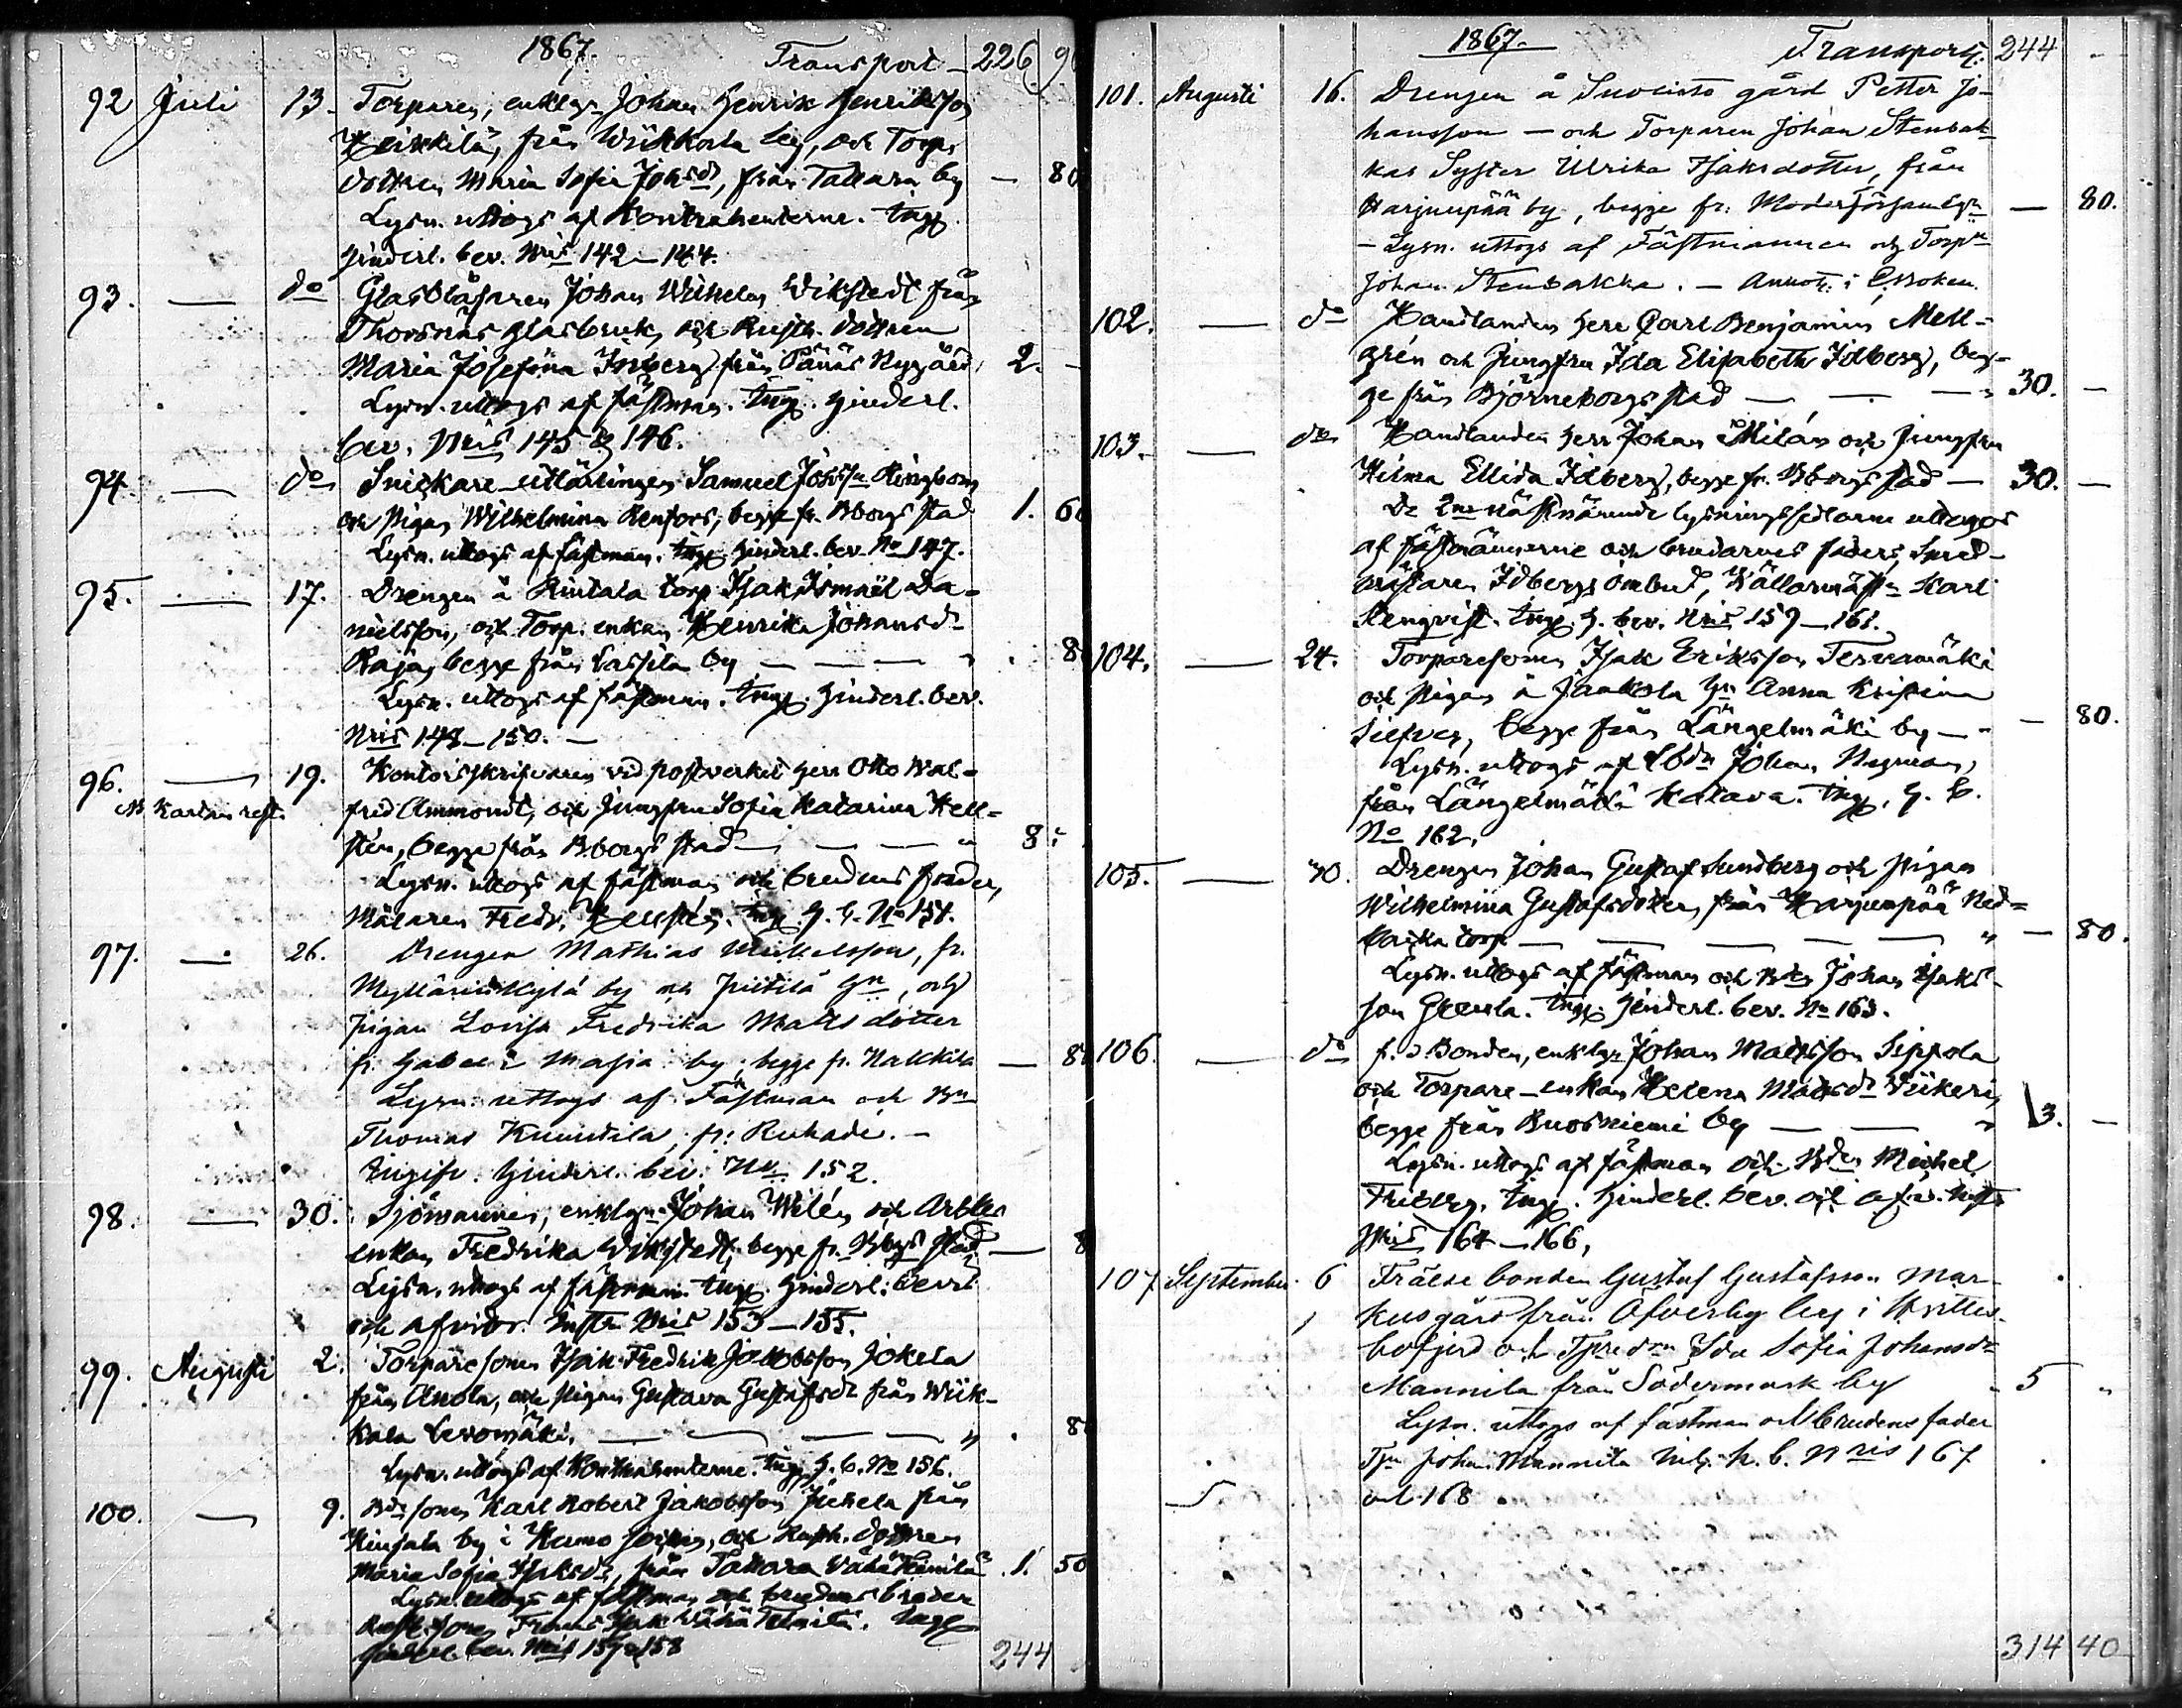 1867. Transport 226 90
92 Juli 13. Torparen, enklgn Johan Henrik Henriksson
Heikkilä, från Wiikkala by, och Torp.
dottren Maria Sofia Johsdr, från Tattara by — 80
Lysn. uttogs af Kontrahenterne. Ingg.
Hinderl. bev. Nris 142–144.
93. — do Glasblåsaren Johan Wilhelm Wikstedt från
Thorsnäs glasbruk, och Rusth. dottren
Maria Josefina Inberg från Pänäs Nygård, 2. –
Lysn. uttogs af fästman. Ingg. hinderl.
bev. Nris 145 & 146.
94. — do Snickare-utlärlingen Samuel Johssn Ringbom
och pigan Wilhelmina Renfors, begge fr. Bborgs stad 1. 60
Lysn. uttogs af fästman. Ingg. hinderl. bev. No 147.
95. — 17. Drengen å Rintala torp Isak Ismaël Da-
nielsson, och Torp. enkan Henrika Johansdr
Raja, begge från Lassila by — — — 80
Lysn. uttogs af fästman. Ingg. hinderl. bev.
Nris 148–150. —
96. — 19. Kontorsskrifvaren vid postverket Herr Otto Wal-
fred Ammondt, och Jungfru Sofia Katarina Hell-
stén, begge från Bborgs stad — — — 8:
Lysn. uttogs af fästman och brudens fader,
Målaren Fredr. Hellstén. Ingg. H. b. No 151.
97. — 26. Drengen Mathias Mickelsson, fr.
Myllärinkylä by och Pietilä Gn, och
pigan Lovisa Fredrika Mattsdotter
fr. Masia by, begge fr. Nakkila — 80
Lysn. uttogs af Fästman och Bn
Thomas Knuutila, fr. Ruhade. —
Ingifv. hinderl. bev. No 152.
98. — 30. Sjömannen, enklgn Johan Wilén och Arbks
enkan Fredrika Wikstedt, begge fr. Bbgs stad — 8
Lysn. uttogs af fästman. Ingg. hinderl. bevis
och afvittr. Instr. Nris 153–155.
99. Augusti 2. Torparesonen Isak Fredrik Jakobsson Jokela
från Anola, och pigan Gustava Gustafsdr från Wiik-
kala Levomäki, — — — — 80
Lysn. uttogs af Kontrahenterne. Ingg. H. b. No 156.
100. — 9. Bdesonen Karl Robert Jakobsson Juhela från
by i Kumo socken, och Rusth. dottren
Maria Sofia Isaksdr, från Tattara Vähä 1. 50
Lysn. uttogs af fästman och brudens broder
Rusth. sonen Frans Isak Vähä Ingg.
hinderl. bev. Nris 157 & 158
244
1867. Transport. 244 –
101. Augusti 16. Drengen å Suovisto gård Petter Jo-
hansson — och Torparen Johan Stenbak-
kas Syster Ulrika Isaksdotter, från
Harjunpää by, begge fr. Moderförsamlgn — 80.
– Lysn. uttogs af Fästmannen och Torpn
Johan Stenbakka. —
102. — do Handlanden Herr Carl Benjamin Mell-
grén och Jungfru Ida Elisabeth Idberg, beg-
ge från Björneborgs stad — — — 30. –
103. — do Handlanden Herr Johan Milán och Jungfru
Hilma Ellida Idberg, begge fr. Bborgs stad — 30. –
De 2ne nästnämnde lysningssedlarna uttogos
af fästmännerne och brudarnes faders,
Idbergs ombud, Källarmästn Karl
Stenqvist. Ingg. H. bev. Nris 159–161.
104. — 24. Torparesonen Isak Eriksson Tervamäki
och Pigan å Jaakola Hn Anna Kristina
Siefver, begge från Längelmäki by — — 80.
Lysn. uttogs af Lbdn Johan Nyman,
från Längelmäki Katava. Ingg. H. b.
No 162.
105. — 30. Drengen Johan Gustaf Sundberg och pigan
Wilhelmiina Gustafsdotter, från Harjunpää Ned-
torp — — — — — — 80.
Lysn. uttogs af fästman och Bden Johan Isaks-
son Ingg. Hinderl. bev. No 163.
106. — do f. d Bonden, enklgn Johan Mattsson Sippola
och Torpare-enkan Helena Mattsdr Wiikeri,
begge från Ruosniemi by — — 3. –
Lysn. uttogs af fästman och Bden Michel
Friberg. Ingg. Hinderl. bev. och afvr. Instr
Nris 164–166,
107 September 6 Frälse bonden Gustaf Gustafsson Mar-
kusgård från Öfverby by i Hvittis-
bofjerd och Tpredrn Ida Sofia Johansdr
Mannila från Södermark by 5 "
Lysn. uttogs af fästman och brudens fader
Tpn Johan Mannila Inlg. h. b. Nris 167
och 168
314 40